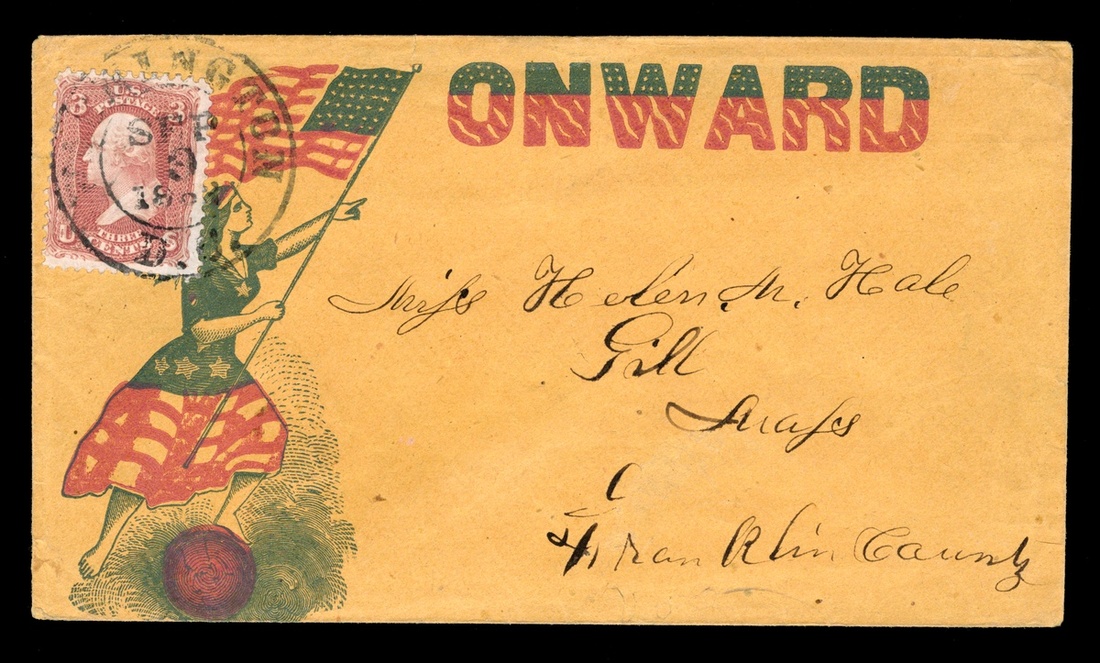 ONWARD
WASHINGTON
SEP
2
D.C.
3 3
U.S.
POSTAGE
THREE
CENTS
U S
Miss Helen M. Hale
Gill
Mass
Franklin County